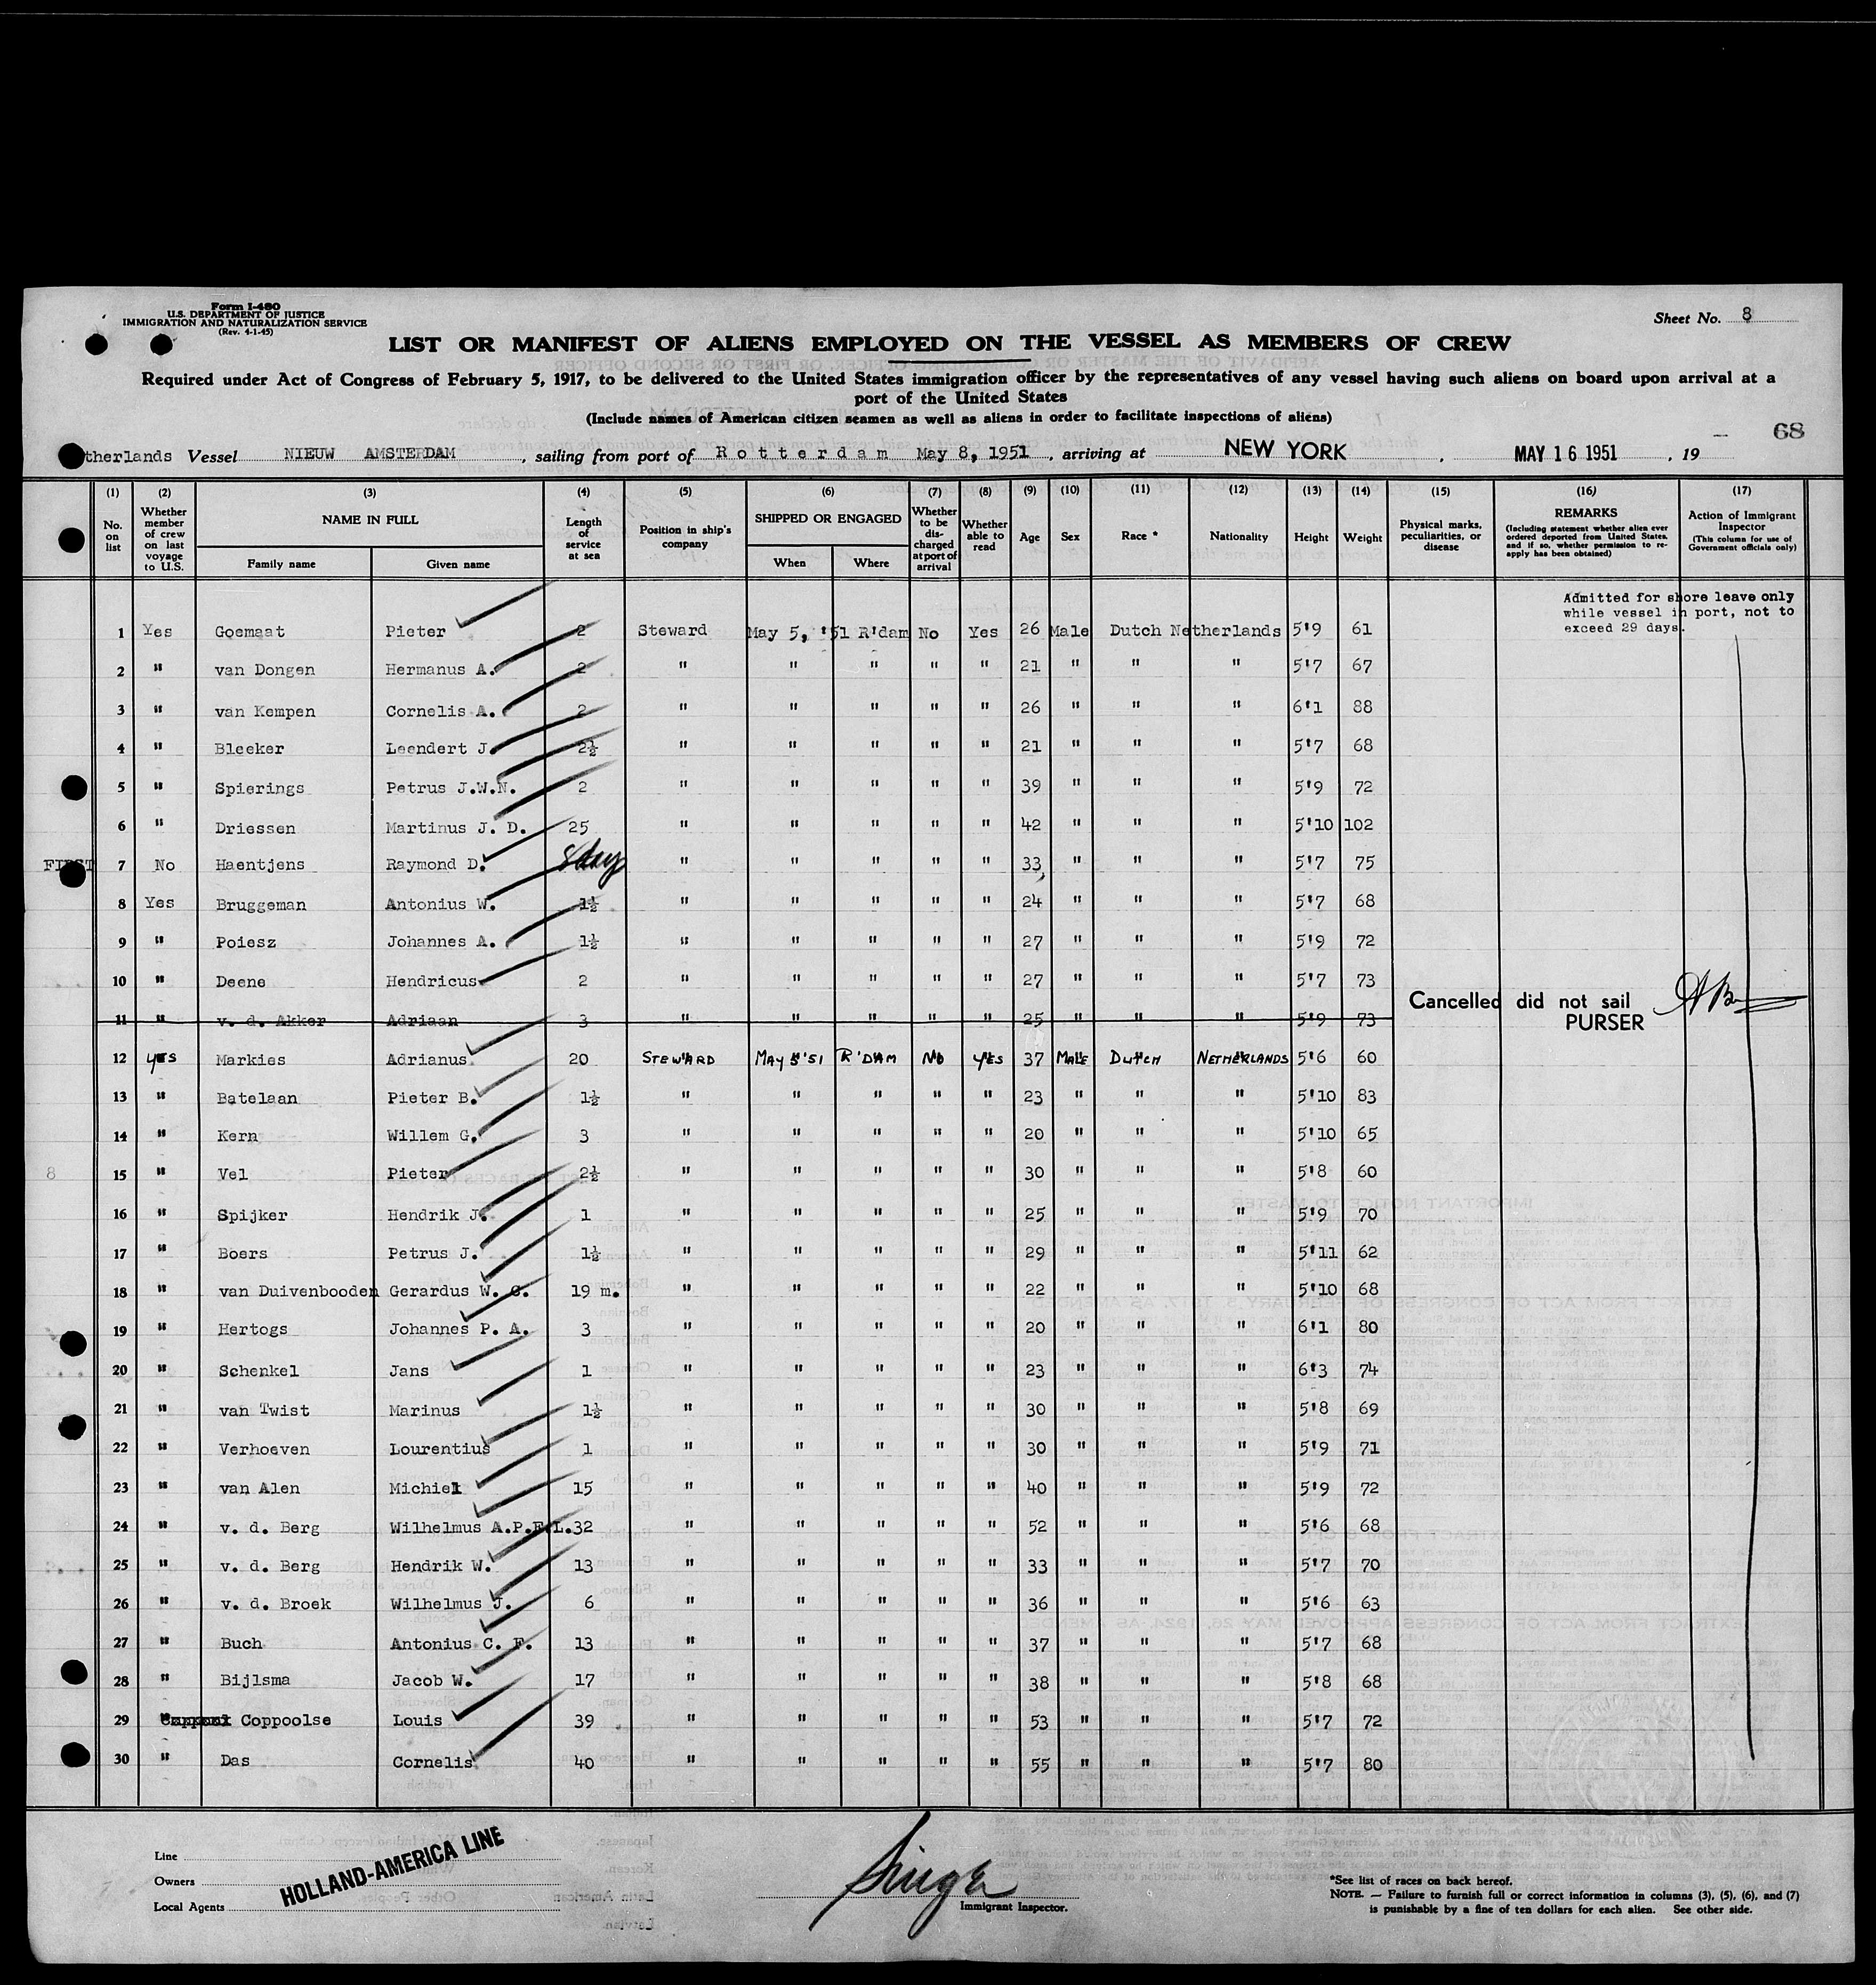 Form I-480
U.S. DEPARTMENT OF JUSTICE
IMMIGRATION AND NATURALIZATION SERVICE
(Rev. 4-1-45)
Sheet No. 8
LIST OR MANIFEST OF ALIENS EMPLOYED ON THE VESSEL AS MEMBERS OF CREW
Required under Act of Congress of February 5, 1917, to be delivered to the United States immigration officer by the representatives of any vessel having such aliens on board upon arrival at a
port of the United States
(Include names of American citizen seamen as well as aliens in order to facilitate inspections of aliens)
68
therlands Vessel NIEUW AMSTERDAM, sailing from port of Rotterdam May 8, 1951, arriving at NEW YORK, MAY 16 1951, 19
(1) (2) (3) (4) (5) (6) (7) (8) (9) (10) (11) (12) (13) (14) (15) (16) (17)
No. on list
Whether member of crew on last voyage to U.S.
NAME IN FULL
Family name
Given name
Length of service at sea
Position in ship's company
SHIPPED OR ENGAGED
When
Where
Whether to be discharged at port of arrival
Whether able to read
Age
Sex
Race *
Nationality
Height
Weight
Physical marks, peculiarities, or disease
REMARKS
(Including statement whether alien ever ordered deported from United States, and if so, whether permission to reapply has been obtained)
Action of Immigrant Inspector
(This column for use of Government officials only)
Admitted for shore leave only
while vessel in port, not to
exceed 29 days.
1 Yes Goemaat Pieter 2 Steward May 5, '51 R'dam No Yes 26 Male Dutch Netherlands 5'9 61
2 " van Dongen Hermanus A. 2 " " " " " 21 " " " 5'7 67
3 " van Kempen Cornelis A. 2 " " " " " 26 " " " 6'1 88
4 " Bleeker Leendert J. 2½ " " " " " 21 " " " 5'7 68
5 " Spierings Petrus J.W.N. 2 " " " " " 39 " " " 5'9 72
6 " Driessen Martinus J. D. 25 " " " " " 42 " " " 5'10 102
FIRST 7 No Haentjens Raymond D. 8 day " " " " " 33 " " " 5'7 75
8 Yes Bruggeman Antonius W. 1½ " " " " " 24 " " " 5'7 68
9 " Poiesz Johannes A. 1½ " " " " " 27 " " " 5'9 72
10 " Deene Hendricus 2 " " " " " 27 " " " 5'7 73
Cancelled did not sail
PURSER
11 " v. d. Akker Adriaan 3 " " " " " 25 " " " 5'9 73
12 yes Markies Adrianus 20 STEWARD MAY 5'51 R'DAM NO YES 37 MALE DUTCH NETHERLANDS 5'6 60
13 " Batelaan Pieter B. 1½ " " " " " 23 " " " 5'10 83
14 " Kern Willem G. 3 " " " " " 20 " " " 5'10 65
8 15 " Vel Pieter 2½ " " " " " 30 " " " 5'8 60
16 " Spijker Hendrik J. 1 " " " " " 25 " " " 5'9 70
17 " Boers Petrus J. 1½ " " " " " 29 " " " 5'11 62
18 " van Duivenbooden Gerardus W. C. 19 m. " " " " " 22 " " " 5'10 68
19 " Hertogs Johannes P. A. 3 " " " " " 20 " " " 6'1 80
20 " Schenkel Jans 1 " " " " " 23 " " " 6'3 74
21 " van Twist Marinus 1½ " " " " " 30 " " " 5'8 69
22 " Verhoeven Lourentius 1 " " " " " 30 " " " 5'9 71
23 " van Alen Michiel 15 " " " " " 40 " " " 5'9 72
24 " v. d. Berg Wilhelmus A.P.E.L. 32 " " " " " 52 " " " 5'6 68
25 " v. d. Berg Hendrik W. 13 " " " " " 33 " " " 5'7 70
26 " v. d. Broek Wilhelmus J. 6 " " " " " 36 " " " 5'6 63
27 " Buch Antonius C. F. 13 " " " " " 37 " " " 5'7 68
28 " Bijlsma Jacob W. 17 " " " " " 38 " " " 5'8 68
29 " Coppoolse Louis 39 " " " " " 53 " " " 5'7 72
30 " Das Cornelis 40 " " " " " 55 " " " 5'7 80
Line
Owners
Local Agents
HOLLAND-AMERICA LINE
Immigrant Inspector.
*See list of races on back hereof.
NOTE. — Failure to furnish full or correct information in columns (3), (5), (6), and (7)
is punishable by a fine of ten dollars for each alien. See other side.